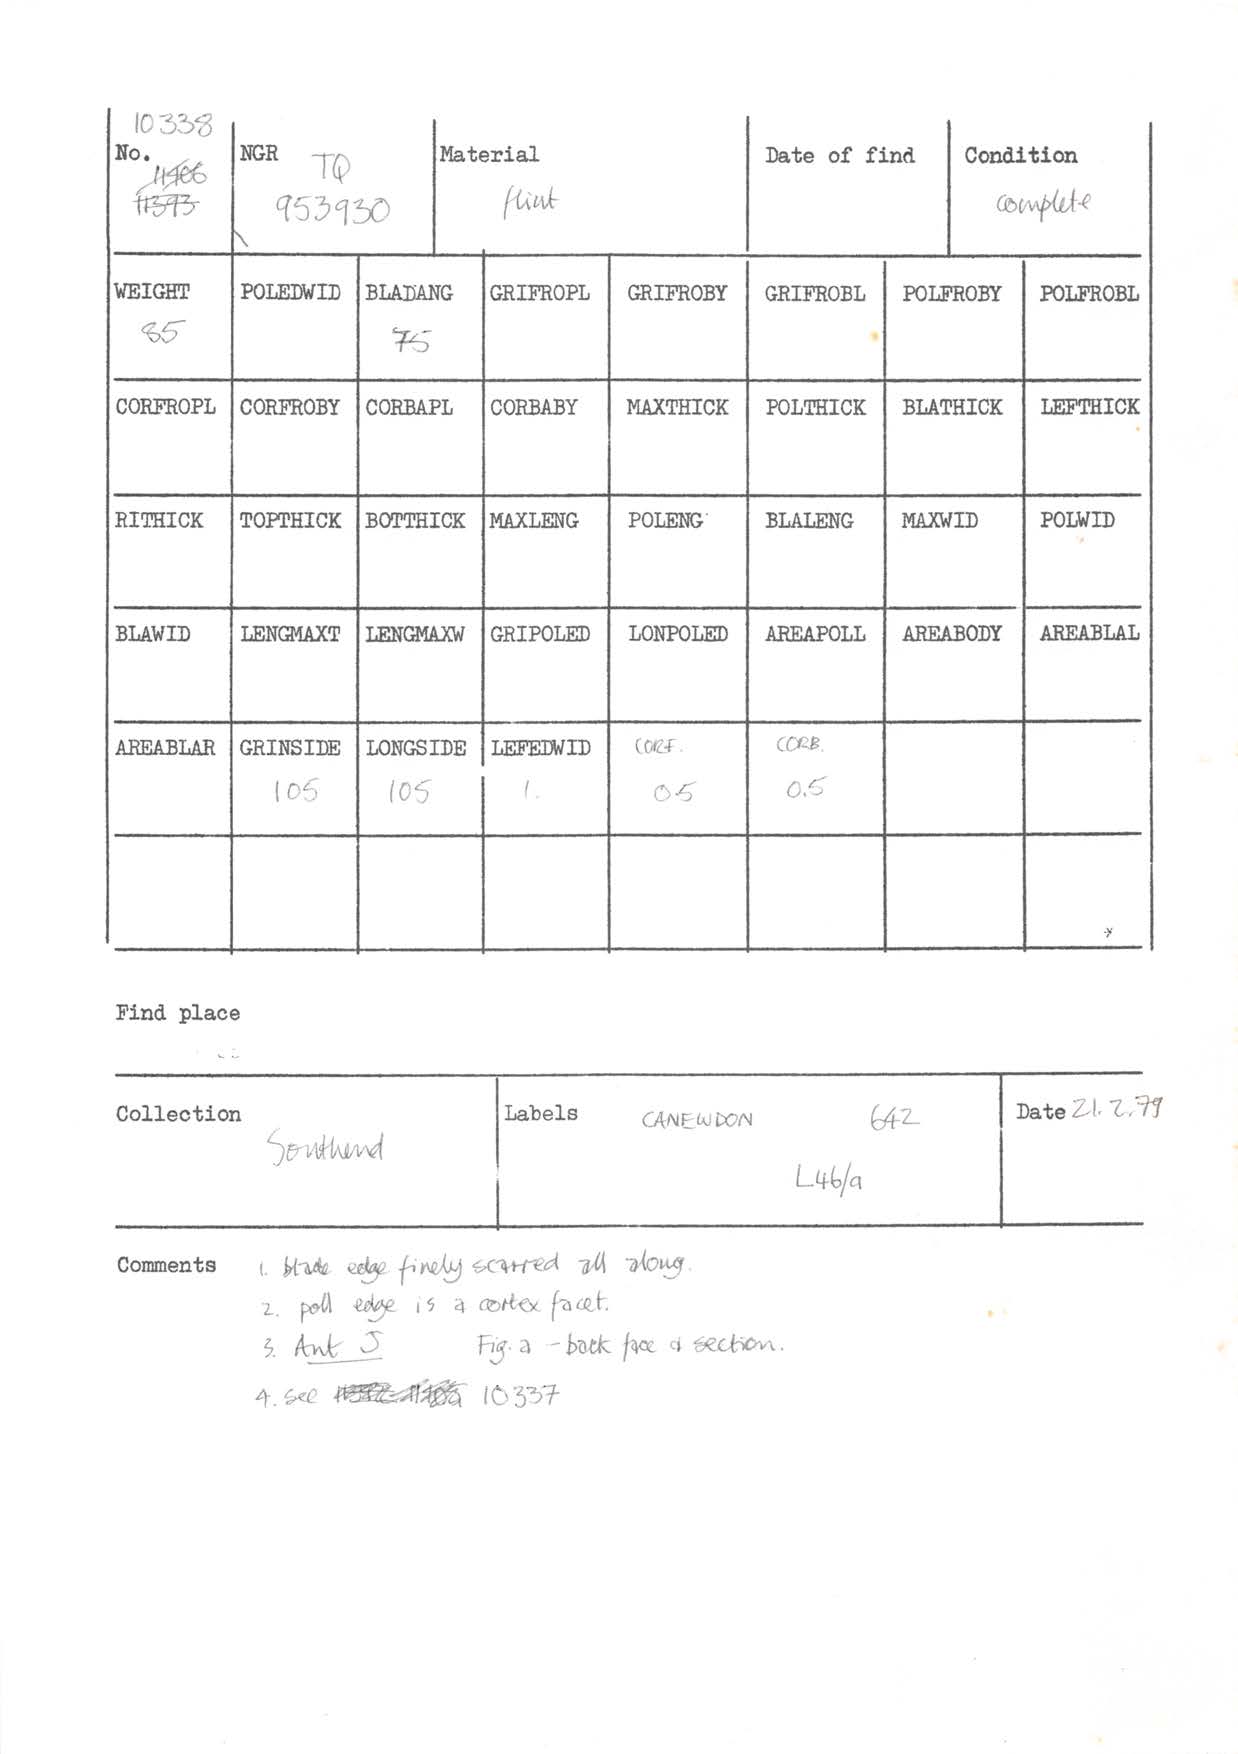 10338
No. NGR TQ Material Date of find Condition
11393 953930 flint complete
WEIGHT POLEDWID BLADANG GRIFROPL GRIFROBY GRIFROBL POLFROBY POLFROBL
85 75
CORFROPL CORFROBY CORBAPL CORBABY MAXTHICK POLTHICK BLATHICK LEFTHICK
RITHICK TOPTHICK BOTTHICK MAXLENG POLENG BLALENG MAXWID POLWID
BLAWID LENGMAXT LENGMAXW GRIPOLED LONPOLED AREAPOLL AREABODY AREABLAL
AREABLAR GRINSIDE LONGSIDE LEFEDWID CORF. CORB.
105 105 1. 05 0.5
Find place
Collection Labels CANEWDON 642 Date 21.2.79
Southend
L46/a
Comments 1. blade edge finely scarred all along.
2. poll edge is a cortex facet.
3. Ant J Fig. a - back face & section.
4. see 10337